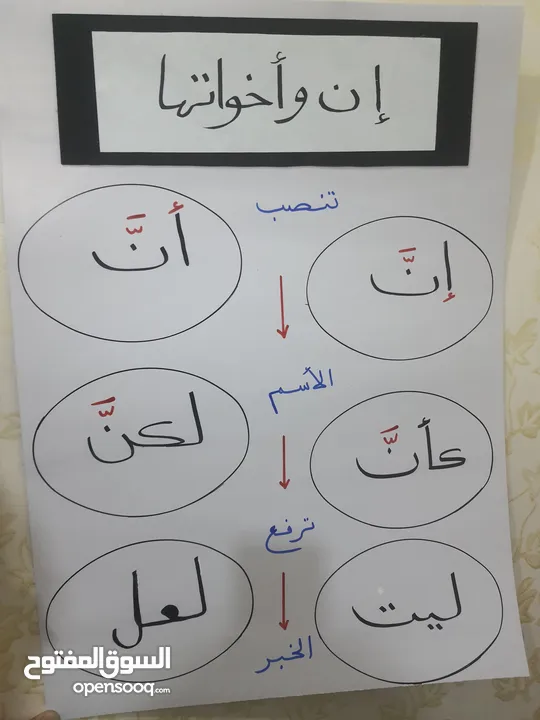 إن وأخواتها
تنصب
إنَّ
أنَّ
الأسم
كأنَّ
لكنَّ
ترفع
ليت
لعل
الخبر
السوق المفتوح
opensooq.com